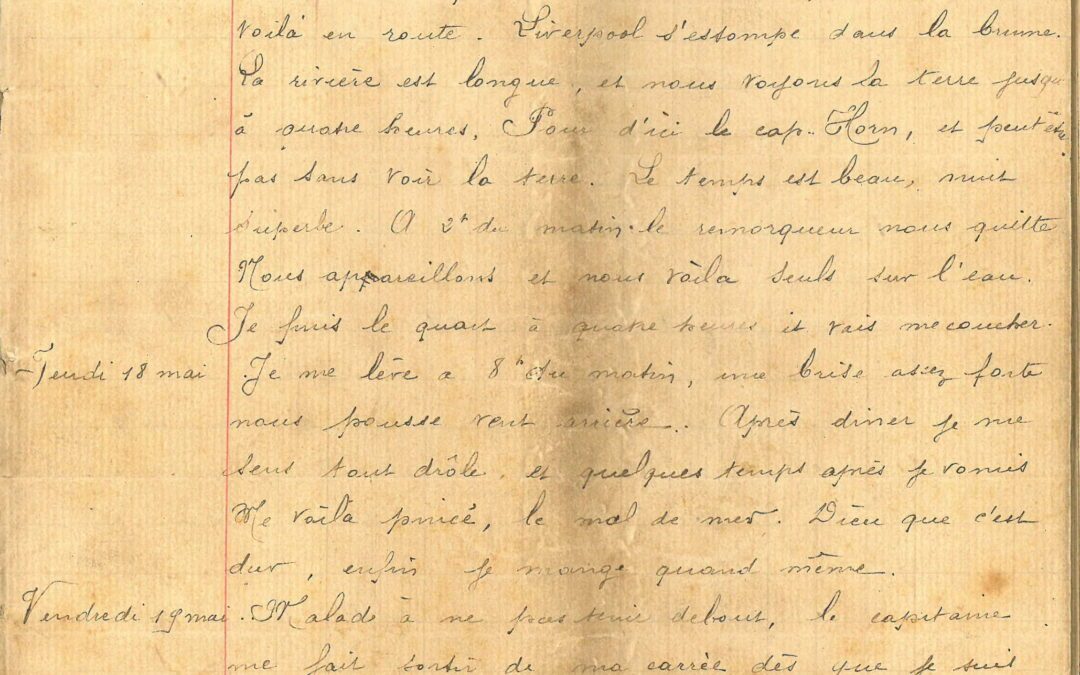 voilà en route. Liverpool s'estompe dans la brume.
La rivière est longue, et nous voyons la terre jusqu
à quatre heures, Pour d'ici le cap-Horn, et peut être
pas sans voir la terre. Le temps est beau, nuit
superbe. A 2h du matin le remorqueur nous quitte
Nous appareillons et nous voila seuls sur l'eau.
Je finis le quart à quatre heures et vais me coucher.
-Jeudi 18 mai Je me lève a 8h du matin, une brise assez forte
nous pousse vent arrière. Après diner je me
sens tout drôle, et quelques temps après je vomis
Me voilà pincé, le mal de mer. Dieu que c'est
dur, enfin je mange quand même.
Vendredi 19 mai. Malade à ne pas tenir debout, le capitaine
me fait sortir de ma carrée dès que je suis